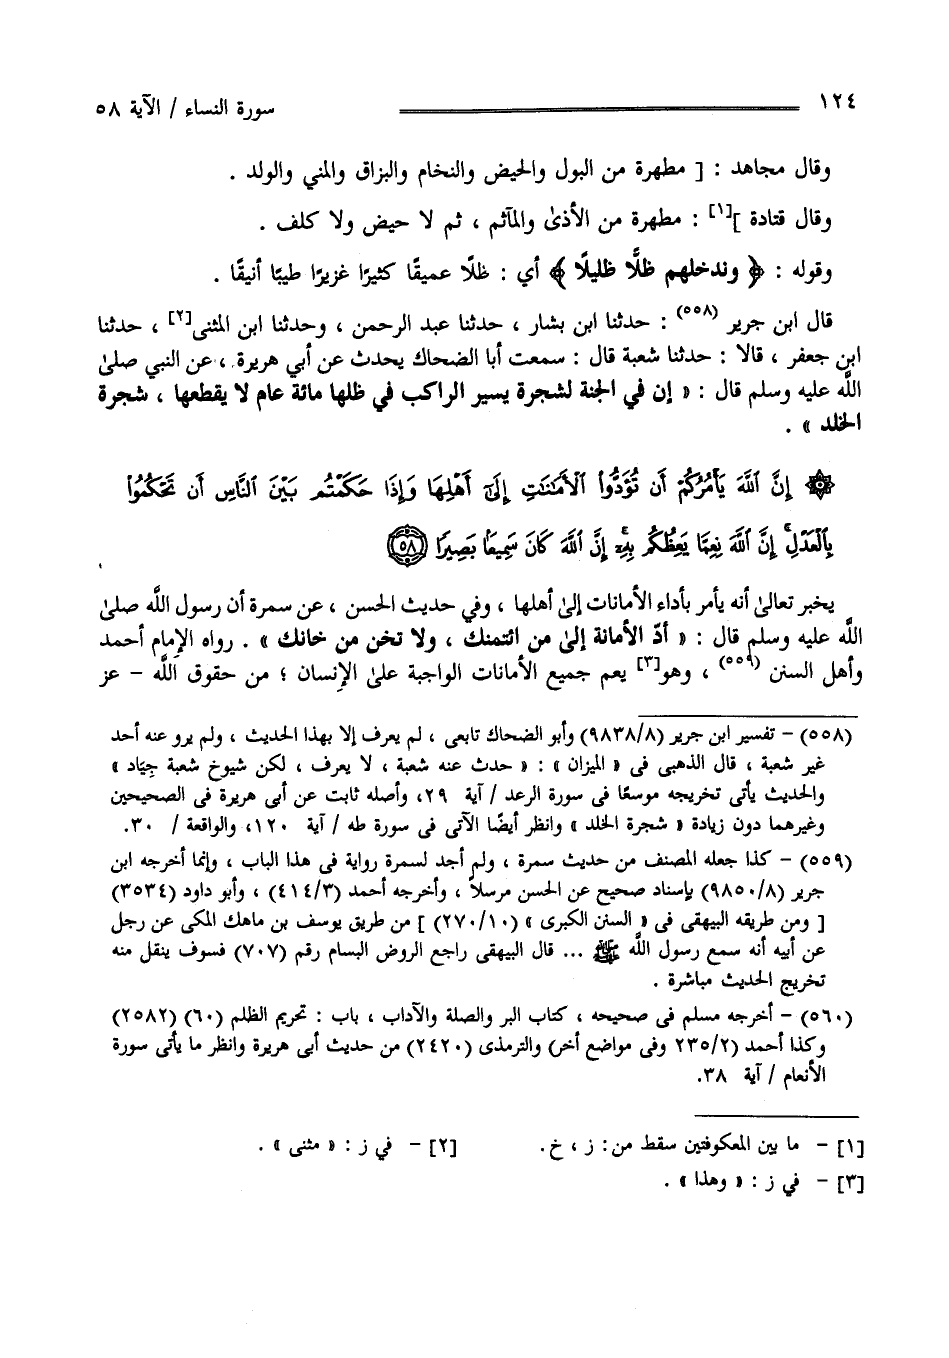 ١٢٤ سورة النساء / الآية ٥٨
وقال مجاهد : [ مطهرة من البول والحيض والنخام والبزاق والمني والولد .
وقال قتادة ][١] : مطهرة من الأذىٰ والمآثم ، ثم لا حيض ولا كلف .
وقوله : ﴿ وندخلهم ظلًّا ظليلًا ﴾ أي : ظلًا عميقًا كثيرًا غزيرًا طيبًا أنيقًا .
قال ابن جرير (٥٥٨) : حدثنا ابن بشار ، حدثنا عبد الرحمن ، وحدثنا ابن المثنى[٢] ، حدثنا
ابن جعفر ، قالا : حدثنا شعبة قال : سمعت أبا الضحاك يحدث عن أبي هريرة ، عن النبي صلىٰ
اللَّه عليه وسلم قال : « إن في الجنة لشجرة يسير الراكب في ظلها مائة عام لا يقطعها ، شجرة
الخلد » .
۞ إِنَّ اللَّهَ يَأْمُرُكُمْ أَن تُؤَدُّوا۟ ٱلْأَمَٰنَٰتِ إِلَىٰٓ أَهْلِهَا وَإِذَا حَكَمْتُم بَيْنَ ٱلنَّاسِ أَن تَحْكُمُوا۟
بِٱلْعَدْلِ ۚ إِنَّ ٱللَّهَ نِعِمَّا يَعِظُكُم بِهِۦٓ ۗ إِنَّ ٱللَّهَ كَانَ سَمِيعًۢا بَصِيرًا ٥٨
يخبر تعالىٰ أنه يأمر بأداء الأمانات إلىٰ أهلها ، وفي حديث الحسن ، عن سمرة أن رسول اللَّه صلىٰ
اللَّه عليه وسلم قال : « أدّ الأمانة إلىٰ من ائتمنك ، ولا تخن من خانك » . رواه الإمام أحمد
وأهل السنن (٥٥٩) ، وهو[٣] يعم جميع الأمانات الواجبة علىٰ الإنسان ؛ من حقوق اللَّه – عز
(٥٥٨) – تفسير ابن جرير (٩٨٣٨/٨) وأبو الضحاك تابعى ، لم يعرف إلا بهذا الحديث ، ولم يرو عنه أحد
غير شعبة ، قال الذهبى فى « الميزان » : « حدث عنه شعبة ، لا يعرف ، لكن شيوخ شعبة جِيَاد »
والحديث يأتى تخريجه موسعًا فى سورة الرعد / آية ٢٩، وأصله ثابت عن أبى هريرة فى الصحيحين
وغيرهما دون زيادة « شجرة الخلد » وانظر أيضًا الآتى فى سورة طه / آية ١٢٠، والواقعة / ٣٠.
(٥٥٩) – كذا جعله المصنف من حديث سمرة ، ولم أجد لسمرة رواية فى هذا الباب ، وإنما أخرجه ابن
جرير (٩٨٥٠/٨) بإسناد صحيح عن الحسن مرسلاً ، وأخرجه أحمد (٤١٤/٣) ، وأبو داود (٣٥٣٤)
[ ومن طريقه البيهقى فى « السنن الكبرى » (٢٧٠/١٠) ] من طريق يوسف بن ماهك المكى عن رجل
عن أبيه أنه سمع رسول اللَّه ﷺ ... قال البيهقى راجع الروض البسام رقم (٧٠٧) فسوف ينقل منه
تخريج الحديث مباشرة .
(٥٦٠) – أخرجه مسلم فى صحيحه ، كتاب البر والصلة والآداب ، باب : تحريم الظلم (٦٠) (٢٥٨٢)
وكذا أحمد (٢٣٥/٢ وفى مواضع أخر) والترمذى (٢٤٢٠) من حديث أبى هريرة وانظر ما يأتى سورة
الأنعام / آية ٣٨.
[١] – ما بين المعكوفتين سقط من: ز ، خ. [٢] – في ز : « مثنى » .
[٣] – في ز : « وهذا » .